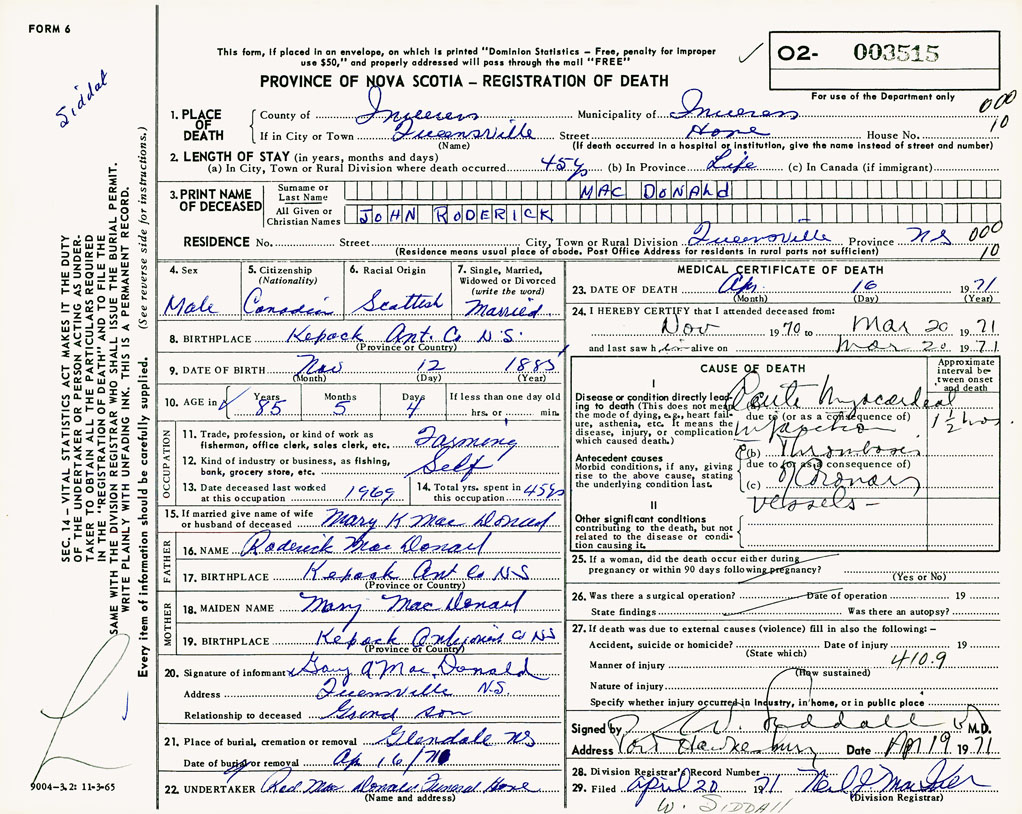 FORM 6
Siddat
This form, if placed in an envelope, on which is printed "Dominion Statistics – Free, penalty for improper
use $50," and properly addressed will pass through the mail "FREE"
✓ O2- 003515
PROVINCE OF NOVA SCOTIA – REGISTRATION OF DEATH
For use of the Department only
1. PLACE OF DEATH
County of Inverness Municipality of Inverness 000 10
If in City or Town Queensville Street Home House No.
(Name) (If death occurred in a hospital or institution, give the name instead of street and number)
2. LENGTH OF STAY (in years, months and days)
(a) In City, Town or Rural Division where death occurred 45 ys (b) In Province Life (c) In Canada (if immigrant)
3. PRINT NAME OF DECEASED
Surname or Last Name MAC DONALd
All Given or Christian Names JOHN RODERICK
RESIDENCE No. Street City, Town or Rural Division Queensville Province NS 000 10
(Residence means usual place of abode. Post Office Address for residents in rural parts not sufficient)
4. Sex Male
5. Citizenship (Nationality) Canadian
6. Racial Origin Scottish
7. Single, Married, Widowed or Divorced (write the word) Married
8. BIRTHPLACE Kepock Ant. Co N.S.
(Province or Country)
9. DATE OF BIRTH Nov 12 1885
(Month) (Day) (Year)
10. AGE in ✓ Years 85 Months 5 Days 4 If less than one day old hrs. or min.
OCCUPATION
11. Trade, profession, or kind of work as fisherman, office clerk, sales clerk, etc. Farming
12. Kind of industry or business, as fishing, bank, grocery store, etc. Self
13. Date deceased last worked at this occupation 1969 14. Total yrs. spent in this occupation 45 ys
15. If married give name of wife or husband of deceased Mary K Mac Donald
FATHER
16. NAME Roderick Mac Donald
17. BIRTHPLACE Kepock Ant Co NS
(Province or Country)
MOTHER
18. MAIDEN NAME Mary Mac Donald
19. BIRTHPLACE Kepock Antigonish Co NS
(Province or Country)
20. Signature of informant Gary A Mac Donald
Address Queensville N.S.
Relationship to deceased Grand son
21. Place of burial, cremation or removal Glendale NS
Date of burial or removal Ap 16/71
22. UNDERTAKER Rod Mac Donald Funeral Home
(Name and address)
MEDICAL CERTIFICATE OF DEATH
23. DATE OF DEATH Ap 16 1971
(Month) (Day) (Year)
24. I HEREBY CERTIFY that I attended deceased from:
Nov 1970 to Mar 20 1971
and last saw h im alive on Mar 20 1971
CAUSE OF DEATH
Approximate interval between onset and death
I
Disease or condition directly leading to death (This does not mean the mode of dying, e.g., heart failure, asthenia, etc. It means the disease, injury, or complication which caused death.)
(a) Acute Myocardial
due to (or as a consequence of)
infarction 1 ½ hrs.
Antecedent causes
Morbid conditions, if any, giving rise to the above cause, stating the underlying condition last.
(b) Thrombosis
due to (or as a consequence of)
(c) Coronary
vessels –
II
Other significant conditions contributing to the death, but not related to the disease or condition causing it.
25. If a woman, did the death occur either during pregnancy or within 90 days following pregnancy?
(Yes or No)
26. Was there a surgical operation? Date of operation 19
State findings Was there an autopsy?
27. If death was due to external causes (violence) fill in also the following: –
Accident, suicide or homicide? Date of injury 19
(State which)
Manner of injury 410.9
(How sustained)
Nature of injury
Specify whether injury occurred in industry, in home, or in public place
Signed by W. Siddall M.D.
Address Port Hawkesbury Date Apr 19 1971
28. Division Registrar's Record Number
29. Filed April 20 1971 Neil J. MacIsaac
(Division Registrar)
W. SIDDALL
SEC. 14 – VITAL STATISTICS ACT MAKES IT THE DUTY
OF THE UNDERTAKER OR PERSON ACTING AS UNDER-
TAKER TO OBTAIN ALL THE PARTICULARS REQUIRED
IN THE "REGISTRATION OF DEATH" AND TO FILE THE
SAME WITH THE DIVISION REGISTRAR WHO SHALL ISSUE THE BURIAL PERMIT.
WRITE PLAINLY WITH UNFADING INK. THIS IS A PERMANENT RECORD.
Every item of information should be carefully supplied. (See reverse side for instructions.)
9004-3.2: 11-3-65